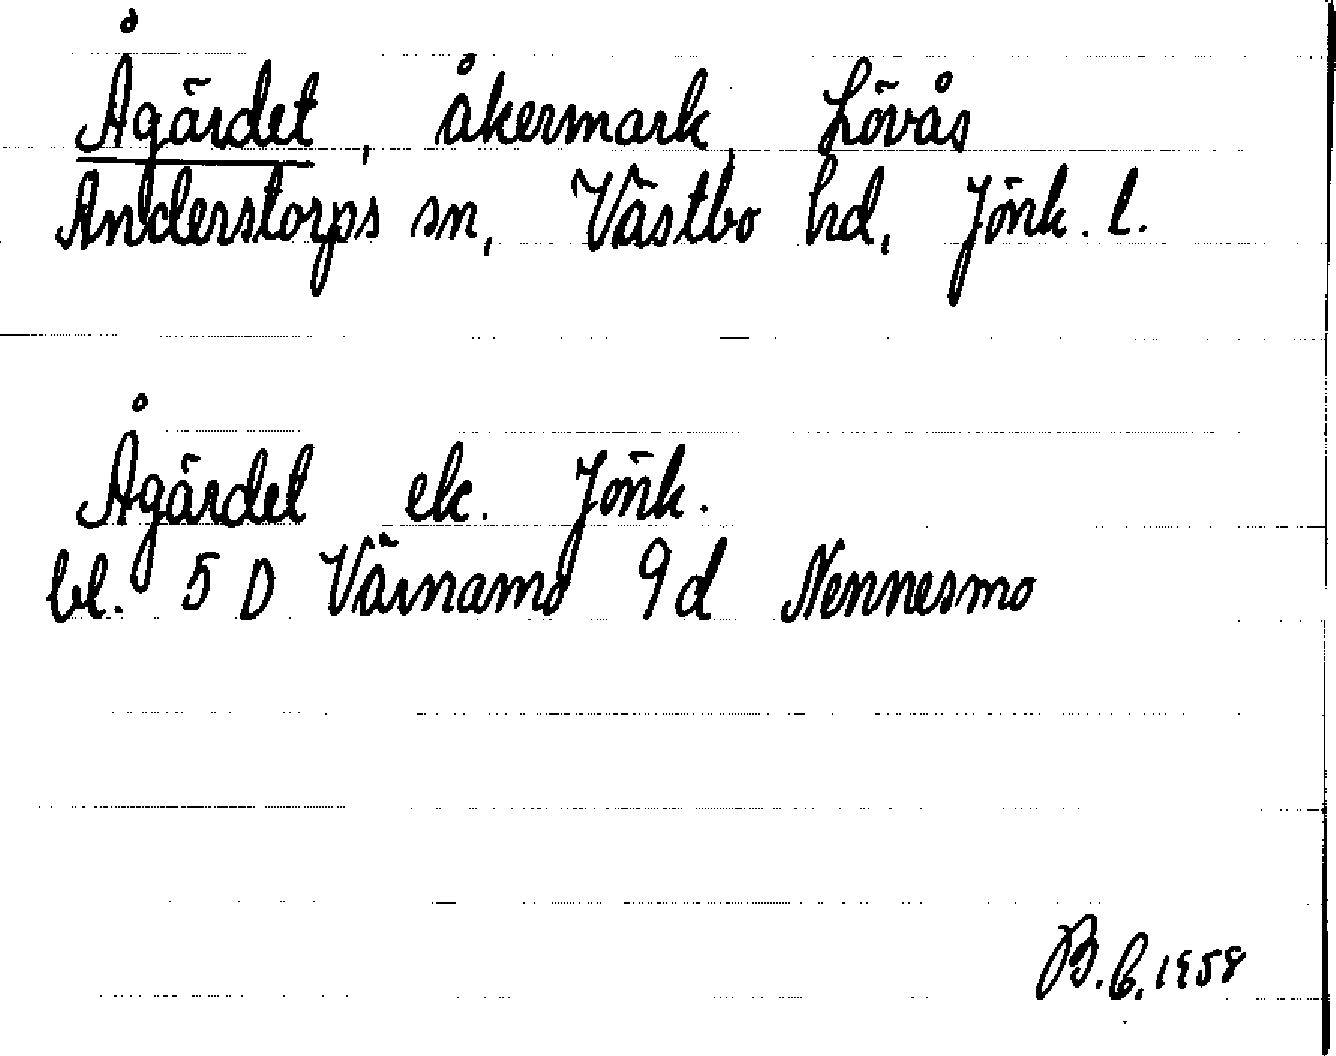 Ågärdet, åkermark, Lövås
Anderstorps sn, Västbo hd, Jönk. l.
Ågärdet ek. Jönk.
bl. 5 D Värnamo 9d Nennesmo
B.G. 1958